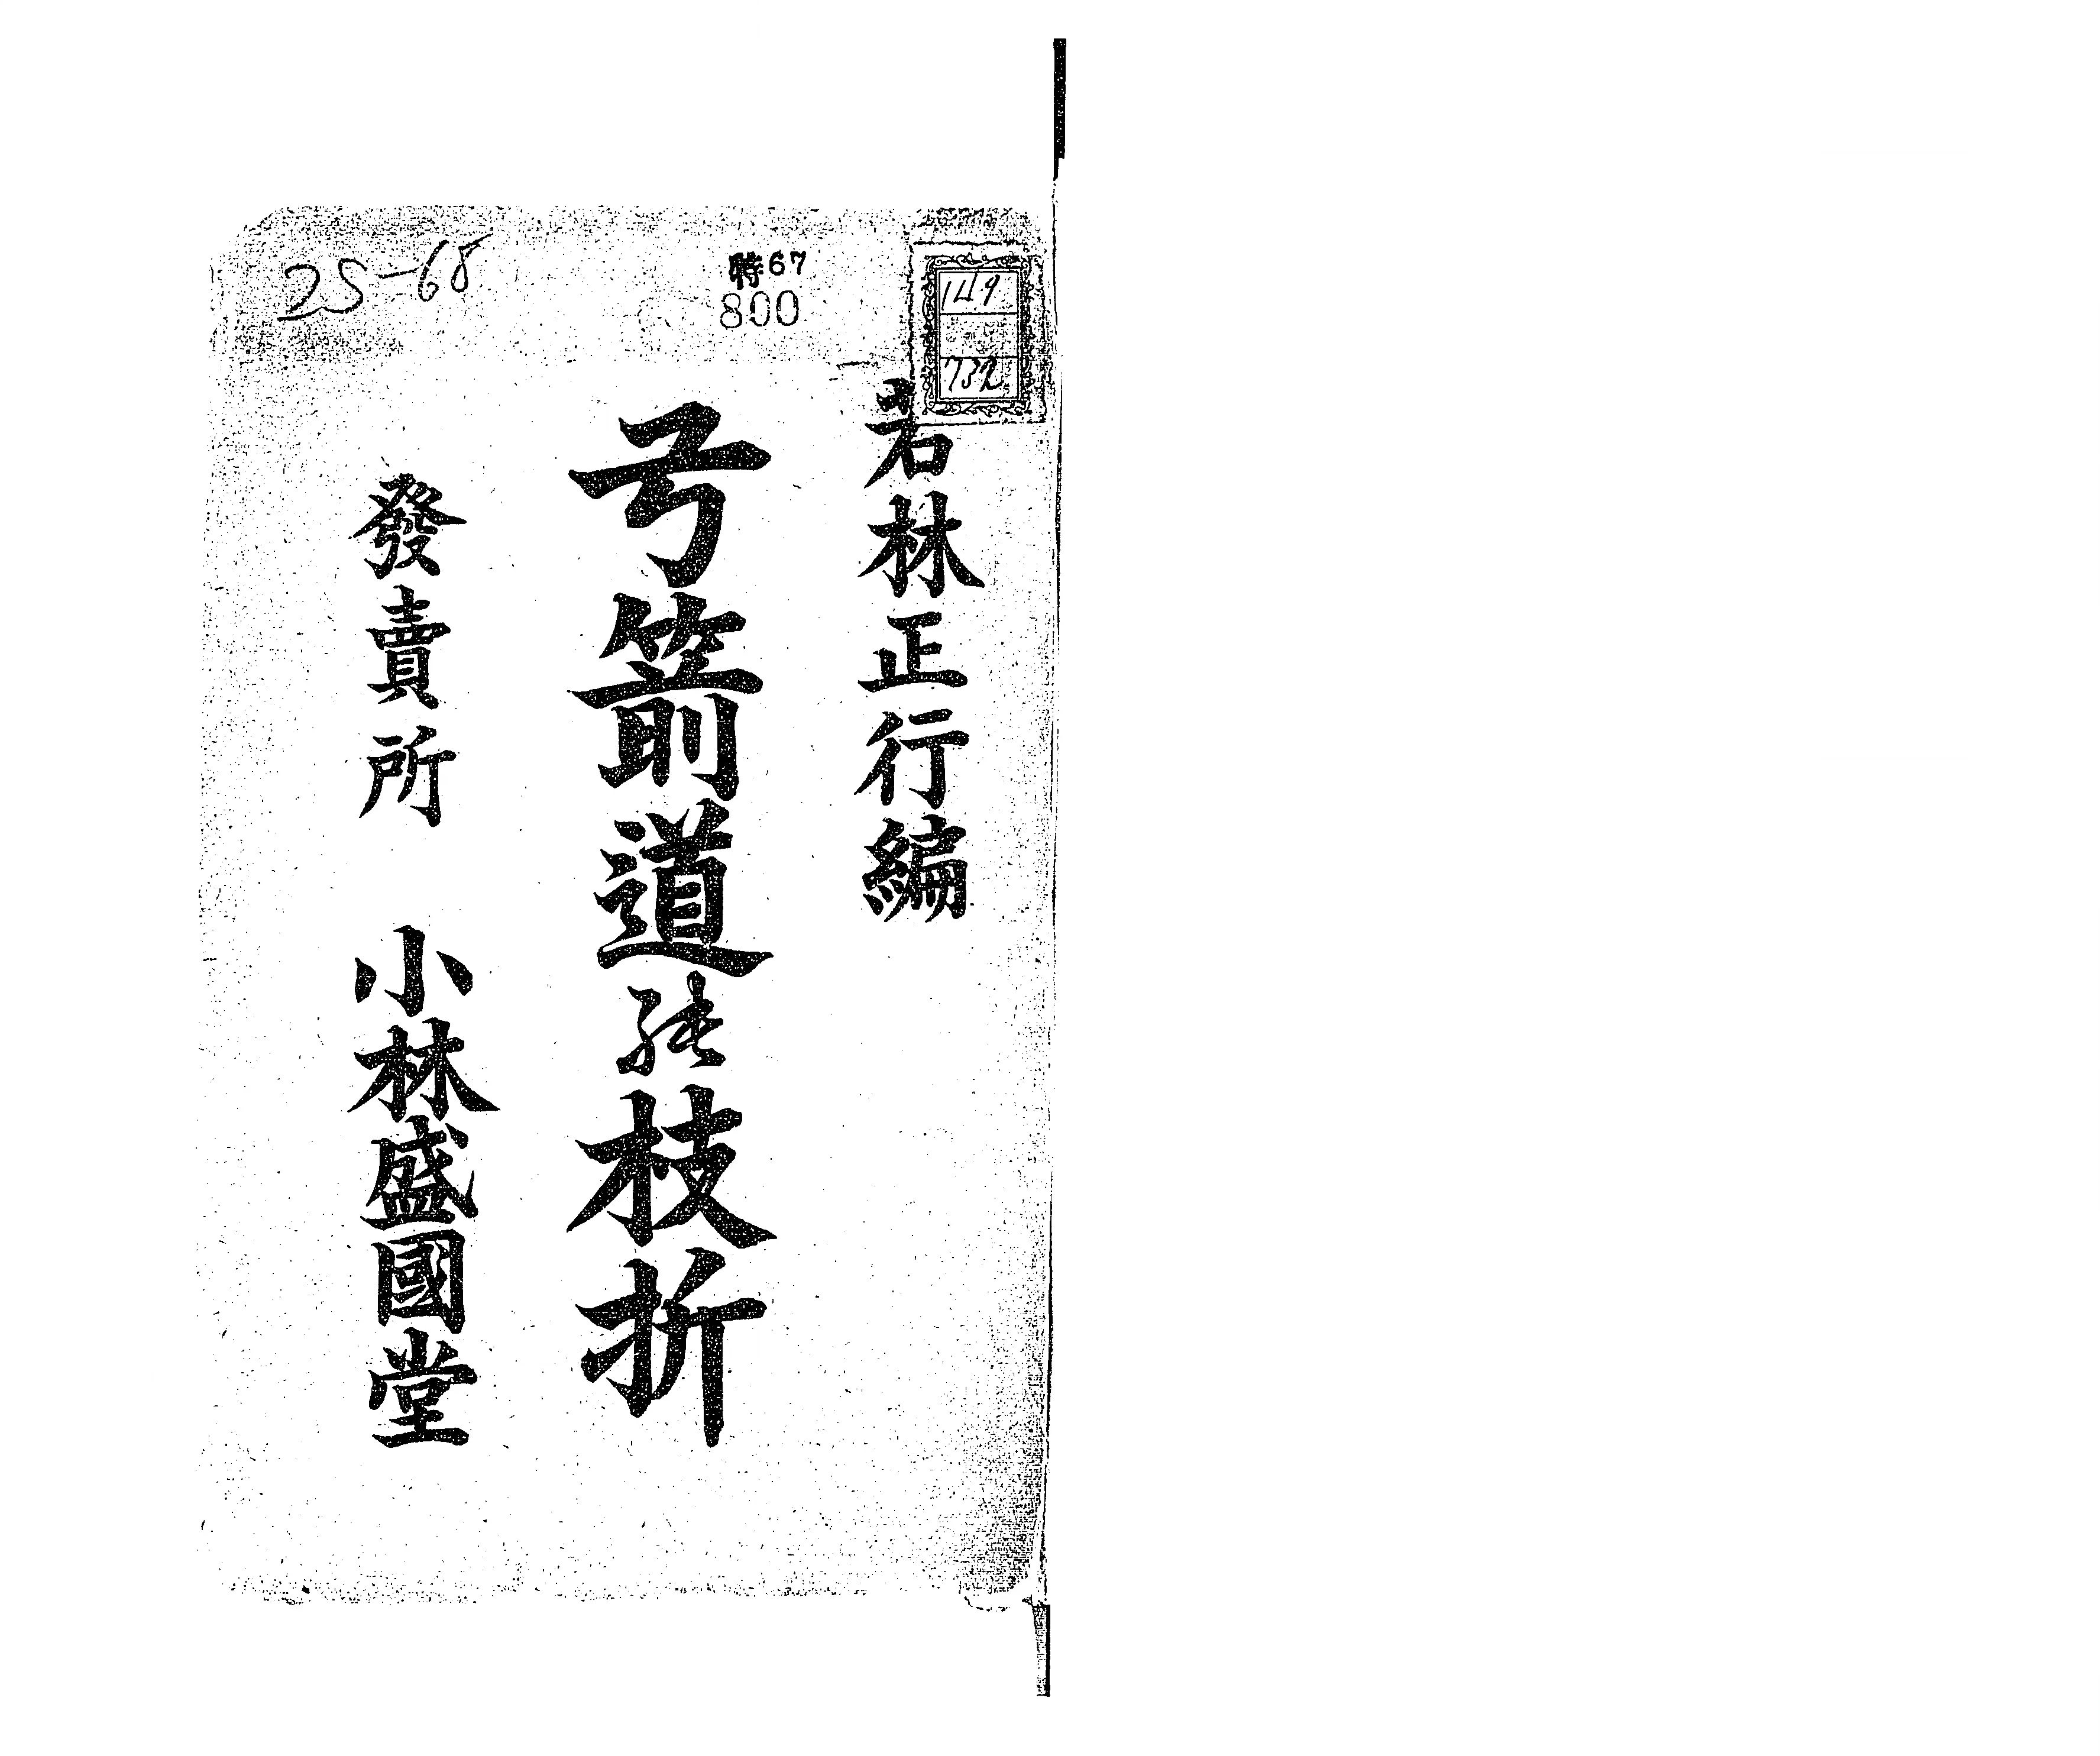 若林正行編
弓箭道能枝折
發賣所 小林盛國堂
特67
800
149
732
25-68